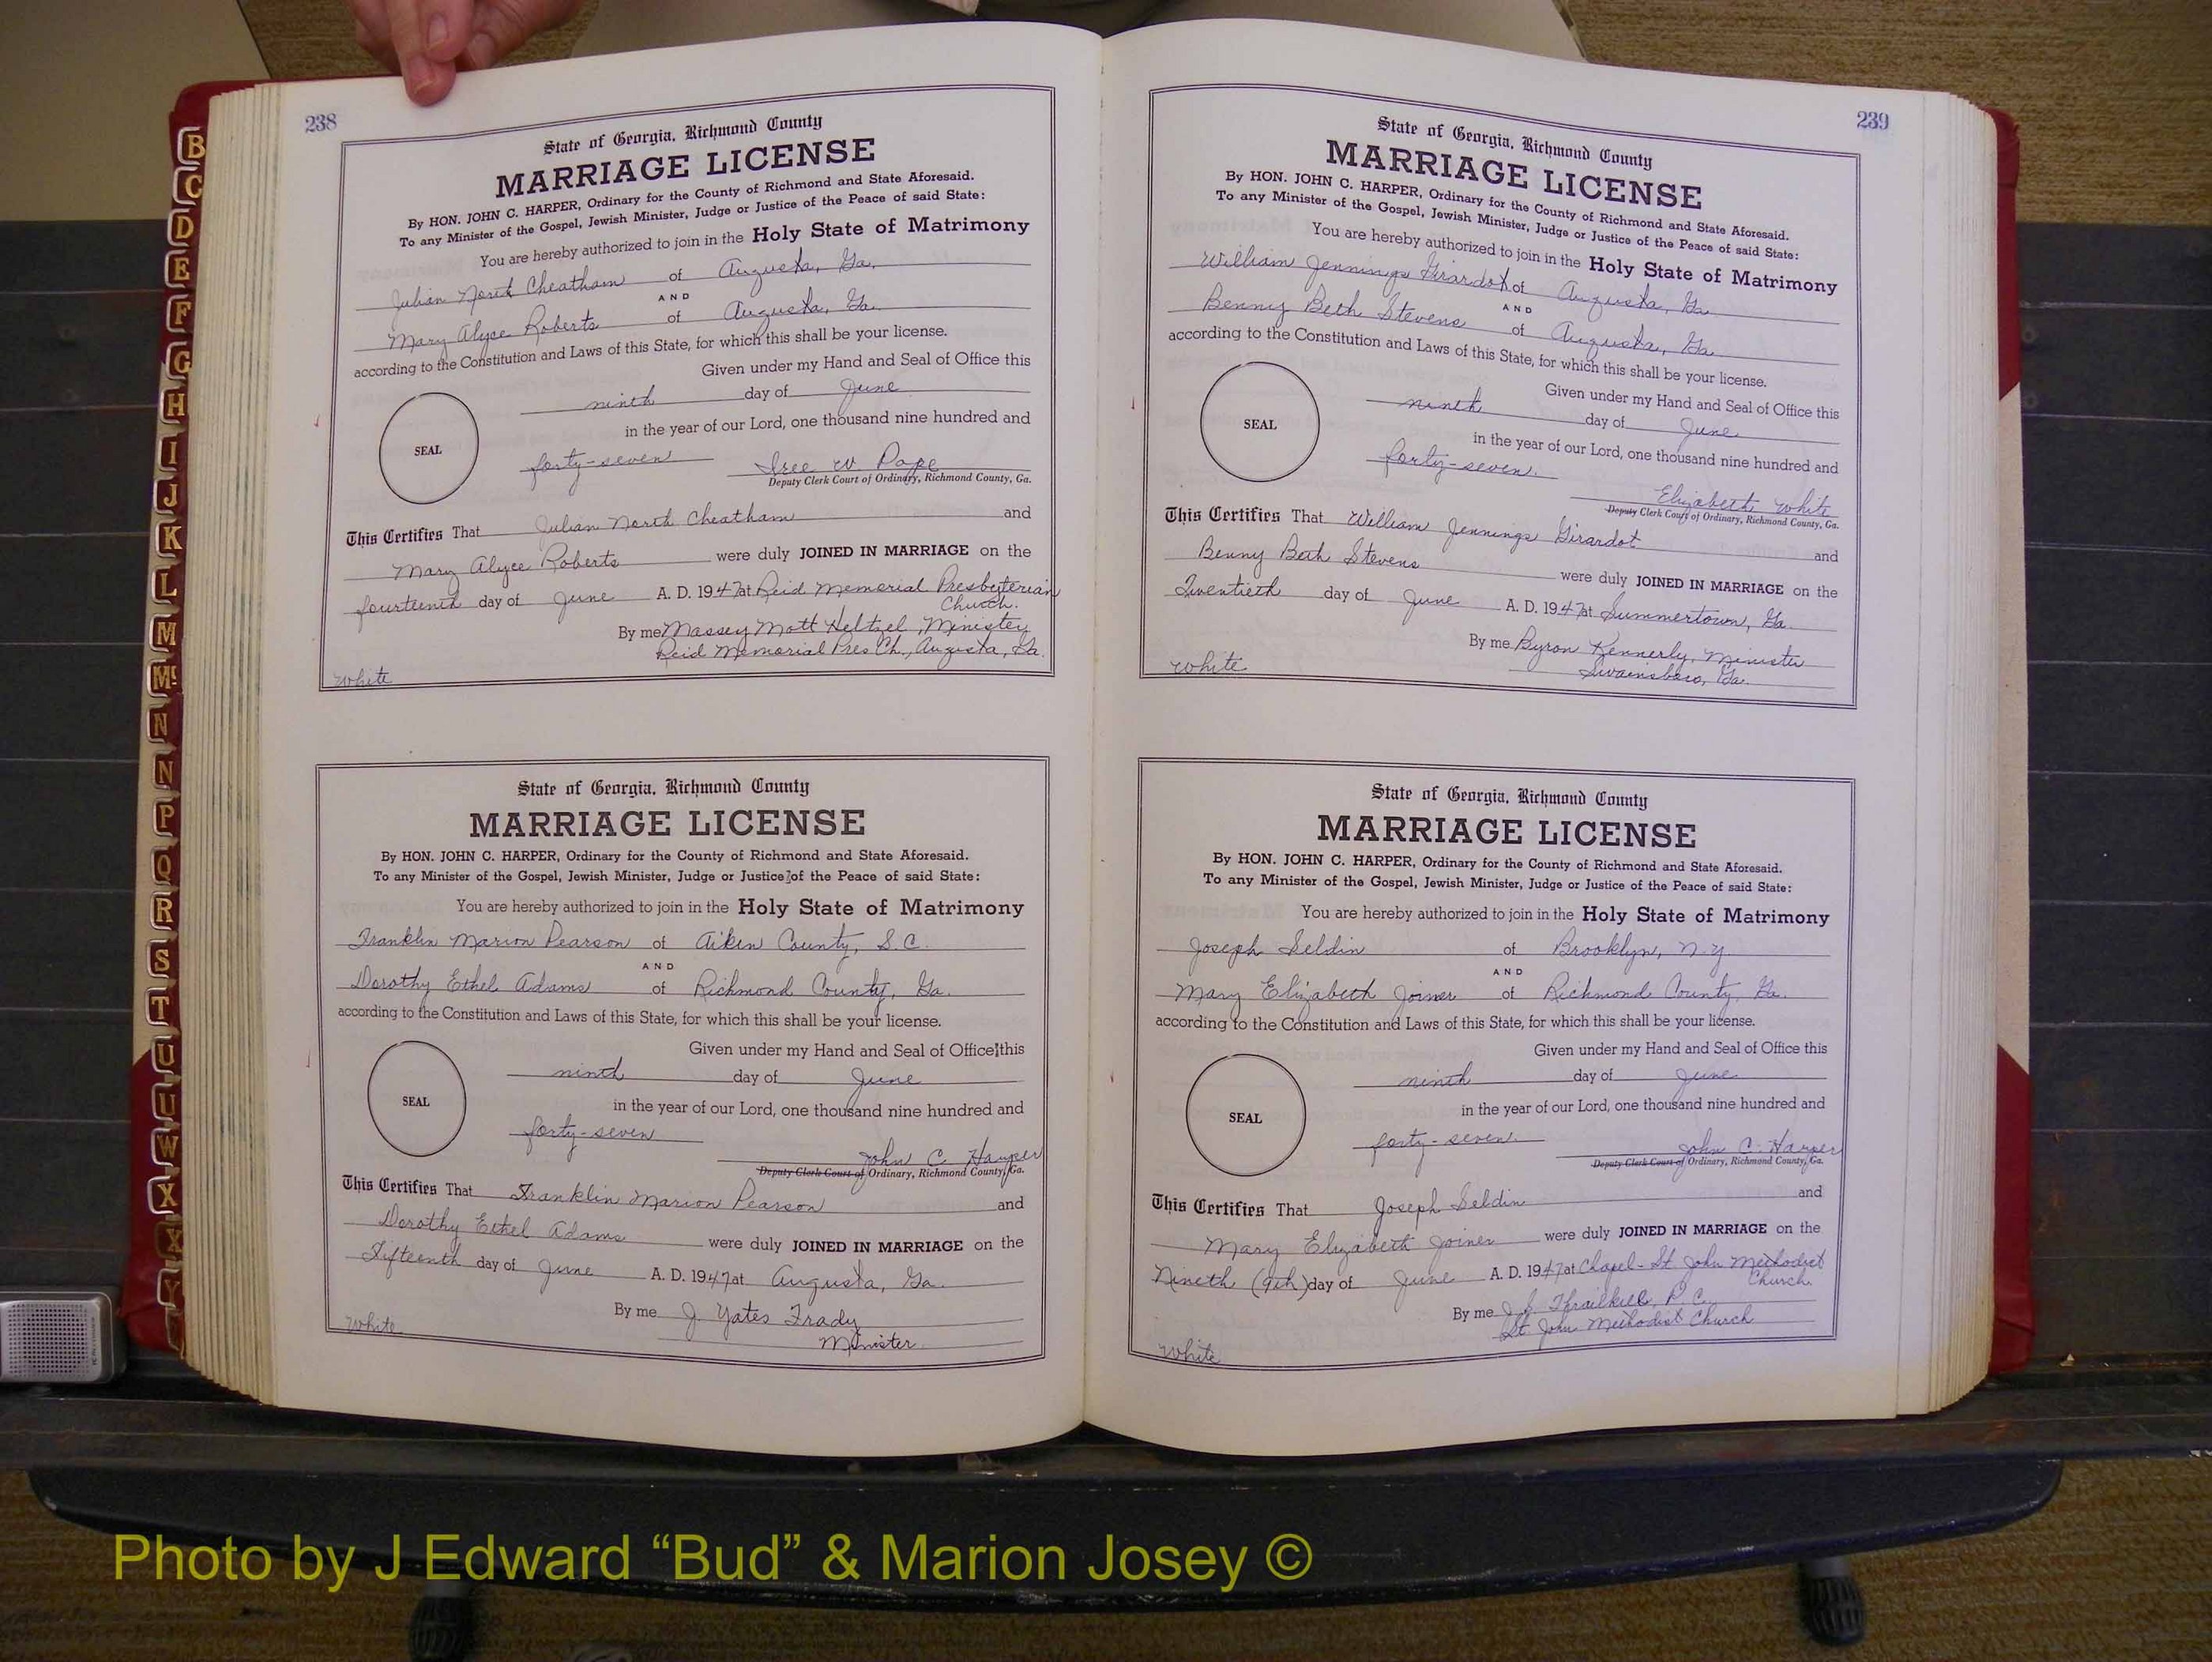 238
State of Georgia, Richmond County
MARRIAGE LICENSE
By HON. JOHN C. HARPER, Ordinary for the County of Richmond and State Aforesaid.
To any Minister of the Gospel, Jewish Minister, Judge or Justice of the Peace of said State:
You are hereby authorized to join in the Holy State of Matrimony
Julian North Cheatham of Augusta, Ga.
AND
Mary Alyce Roberts of Augusta, Ga.
according to the Constitution and Laws of this State, for which this shall be your license.
Given under my Hand and Seal of Office this
ninth day of June
in the year of our Lord, one thousand nine hundred and
SEAL
forty-seven W. Pope
Deputy Clerk Court of Ordinary, Richmond County, Ga.
This Certifies That Julian North Cheatham and
Mary Alyce Roberts were duly JOINED IN MARRIAGE on the
fourteenth day of June A. D. 1947 at Reid Memorial Presbyterian
Church.
By me Massey Mott Heltzel, Minister
Reid Memorial Pres Ch., Augusta, Ga.
White
State of Georgia, Richmond County
MARRIAGE LICENSE
By HON. JOHN C. HARPER, Ordinary for the County of Richmond and State Aforesaid.
To any Minister of the Gospel, Jewish Minister, Judge or Justice of the Peace of said State:
You are hereby authorized to join in the Holy State of Matrimony
Franklin Marion Pearson of Aiken County, S.C.
AND
Dorothy Ethel Adams of Richmond County, Ga.
according to the Constitution and Laws of this State, for which this shall be your license.
Given under my Hand and Seal of Office this
ninth day of June
SEAL
in the year of our Lord, one thousand nine hundred and
forty-seven John C. Harper
Deputy Clerk Court of Ordinary, Richmond County, Ga.
This Certifies That Franklin Marion Pearson and
Dorothy Ethel Adams were duly JOINED IN MARRIAGE on the
Fifteenth day of June A. D. 1947 at Augusta, Ga.
By me J. Yates Frady
Minister.
White
239
State of Georgia, Richmond County
MARRIAGE LICENSE
By HON. JOHN C. HARPER, Ordinary for the County of Richmond and State Aforesaid.
To any Minister of the Gospel, Jewish Minister, Judge or Justice of the Peace of said State:
You are hereby authorized to join in the Holy State of Matrimony
William Jennings Girardot of Augusta, Ga.
AND
Benny Beth Stevens of Augusta, Ga.
according to the Constitution and Laws of this State, for which this shall be your license.
Given under my Hand and Seal of Office this
ninth day of June
SEAL
in the year of our Lord, one thousand nine hundred and
forty-seven. Elizabeth White
Deputy Clerk Court of Ordinary, Richmond County, Ga.
This Certifies That William Jennings Girardot and
Benny Beth Stevens were duly JOINED IN MARRIAGE on the
Twentieth day of June A. D. 1947 at Summertown, Ga.
By me Byron Kennerly, Minister
Swainsboro, Ga.
White
State of Georgia, Richmond County
MARRIAGE LICENSE
By HON. JOHN C. HARPER, Ordinary for the County of Richmond and State Aforesaid.
To any Minister of the Gospel, Jewish Minister, Judge or Justice of the Peace of said State:
You are hereby authorized to join in the Holy State of Matrimony
Joseph Seldin of Brooklyn, N.Y.
AND
Mary Elizabeth Joiner of Richmond County, Ga.
according to the Constitution and Laws of this State, for which this shall be your license.
Given under my Hand and Seal of Office this
ninth day of June
SEAL
in the year of our Lord, one thousand nine hundred and
forty-seven. John C. Harper
Deputy Clerk Court of Ordinary, Richmond County, Ga.
This Certifies That Joseph Seldin and
Mary Elizabeth Joiner were duly JOINED IN MARRIAGE on the
Nineth (9th) day of June A. D. 1947 at Chapel-St John Methodist
Church.
By me Thrailkill, P. C.
St. John Methodist Church
White
B
C
D
E
F
G
H
I
J
K
L
M
Mc
N
N
P
Q
R
S
T
U
U
W
X
X
Y
Photo by J Edward “Bud” & Marion Josey ©